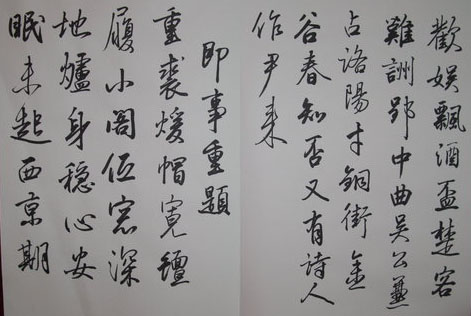 歡娱飄酒盃楚客
難詶郢中曲吳公兼
占洛陽才銅街金
谷春知否又有詩人
作尹來
即事重題
重裘煖帽寬氊
履小閣低窓深
地爐身穩心安
眠未起西京朝